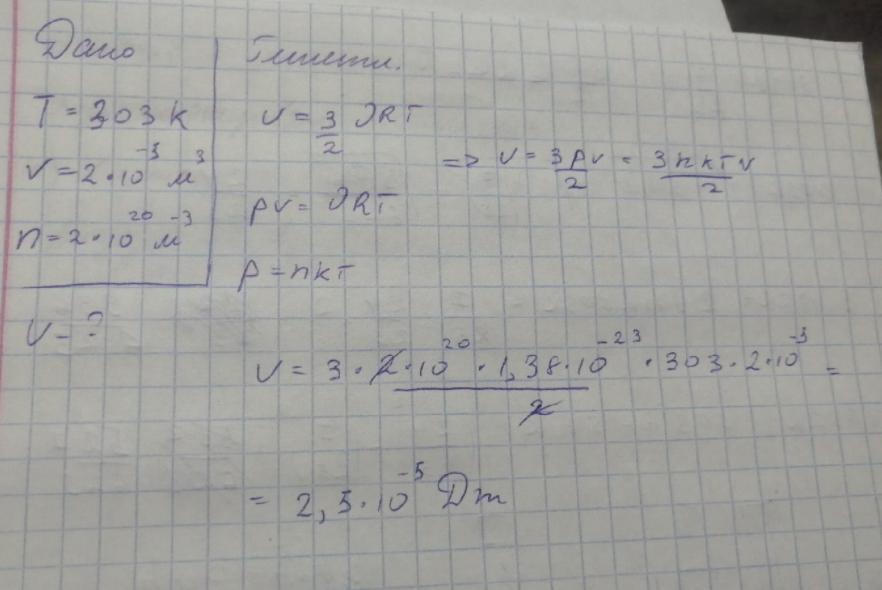 Дано
T = 303 K
V = 2·10⁻³ м³
n = 2·10²⁰ м⁻³
U - ?
Решение.
U = 3/2 νRT
pV = νRT
p = nkT
=> U = 3pV/2 = 3nkTV/2
U = 3·2·10²⁰·1,38·10⁻²³·303·2·10⁻³/2 =
= 2,5·10⁻⁵ Дж